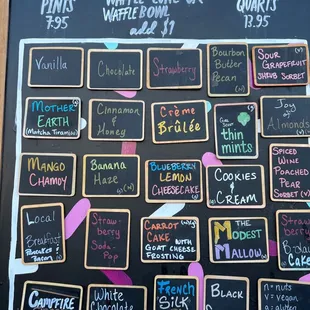 PINTS
7.95
WAFFLE CONE or
WAFFLEBOWL
add $1
QUARTS
13.95
Vanilla
Chocolate
Strawberry
Bourbon
Butter
Pecan
SOUR
GRAPEFRUIT
SHRUB SORBET
MOTHER
EARTH
(Matcha Tiramisu)
Cinnamon
&
Honey
CRÈME
BRÛLÉE
thin
mints
Joy
of
Almonds
MANGO
CHAMOY
BANANA
HAZE
BLUEBERRY
LEMON
CHEESECAKE
COOKIES
&
CREAM
SPICED
WINE
POACHED
PEAR
SORBET
Local
Breakfast
BACON
Straw-
berry
Soda-
Pop
CARROT
CAKE
with GOAT CHEESE
FROSTING
The
MODEST
MALLOW
Strawberry
CAKE
CAMPFIRE
White
Chocolate
FRENCH
SILK
BLACK
n = NUTS
v = VEGAN